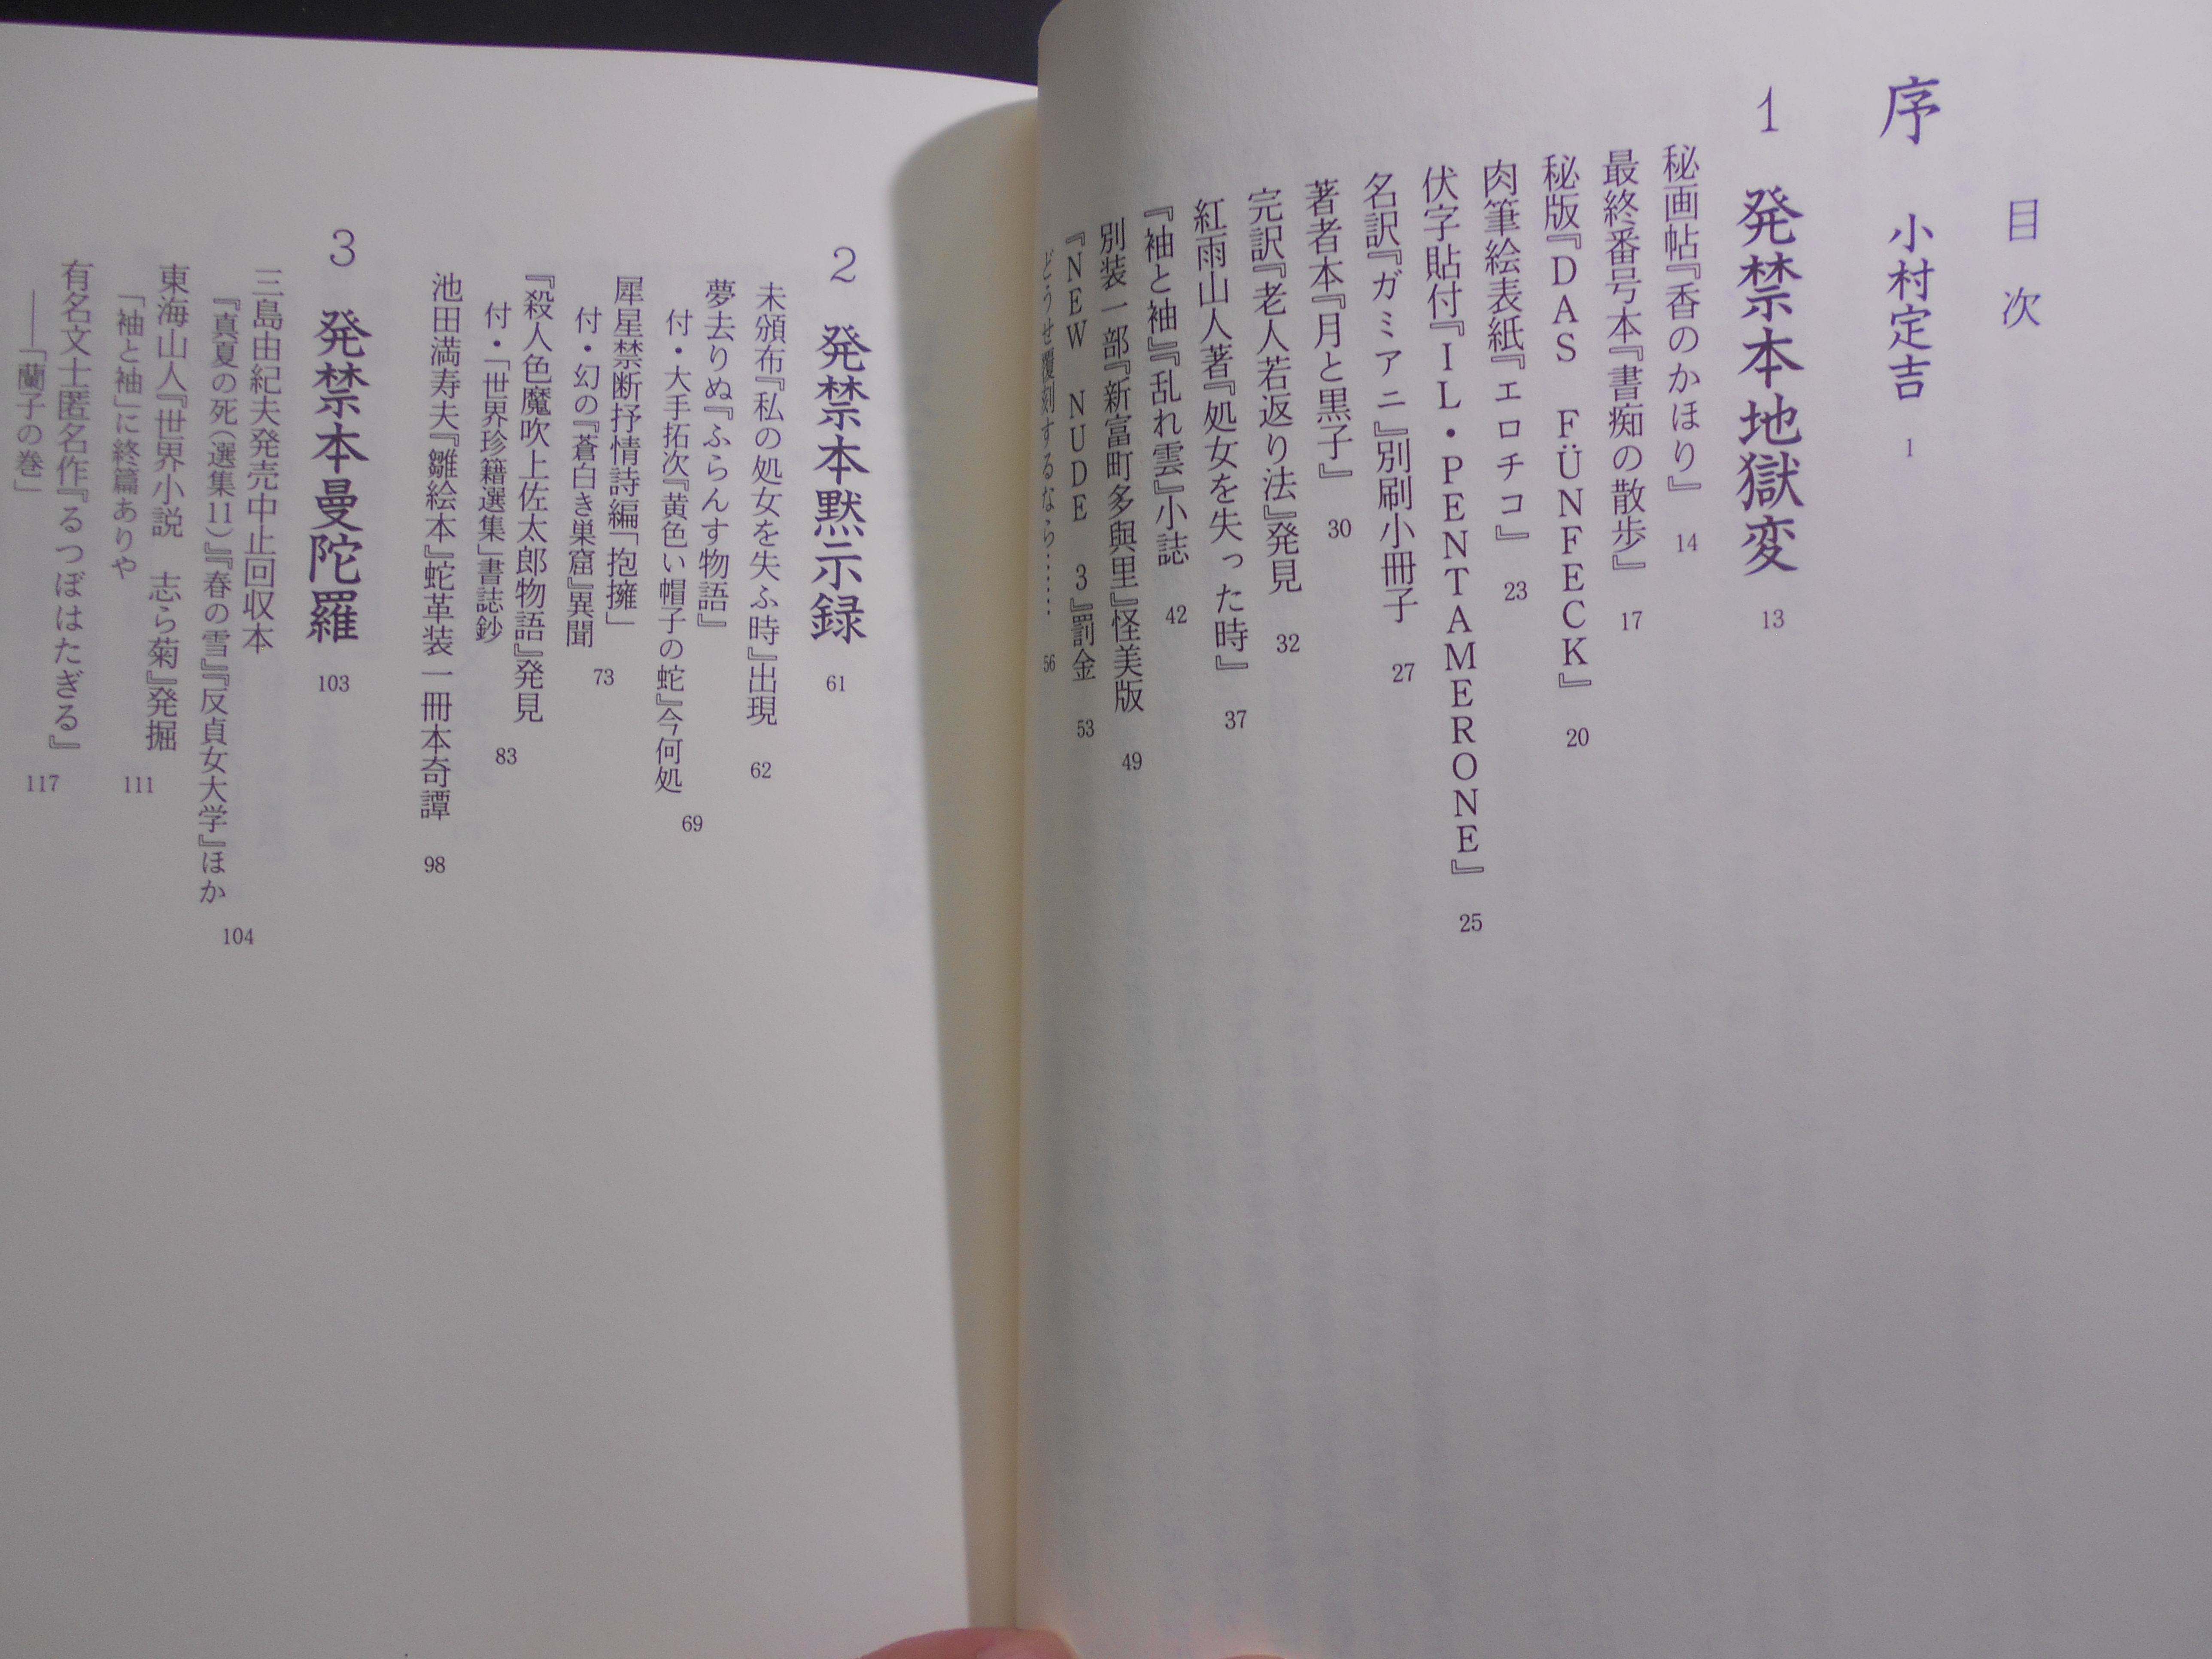 目次
序 小村定吉 1
1 発禁本地獄変 13
秘画帖『香のかほり』 14
最終番号本『書痴の散歩』 17
秘版『DAS FÜNFECK』 20
肉筆絵表紙『エロチコ』 23
伏字貼付『IL・PENTAMERONE』 25
名訳『ガミアニ』別刷小冊子 27
著者本『月と黒子』 30
完訳『老人若返り法』発見 32
紅雨山人著『処女を失った時』 37
『袖と袖』『乱れ雲』小誌 42
別装一部『新富町多與里』怪美版 49
『NEW NUDE 3』罰金 53
どうせ覆刻するなら…… 56
2 発禁本黙示録 61
未頒布『私の処女を失ふ時』出現 62
夢去りぬ『ふらんす物語』
付・大手拓次『黄色い帽子の蛇』今何処 69
犀星禁断抒情詩編「抱擁」
付・幻の『蒼白き巣窟』異聞 73
『殺人色魔吹上佐太郎物語』発見
付・「世界珍籍選集」書誌鈔 83
池田満寿夫『雛絵本』蛇革装一冊本奇譚 98
3 発禁本曼陀羅 103
三島由紀夫発売中止回収本
『真夏の死(選集11)』『春の雪』『反貞女大学』ほか 104
東海山人『世界小説 志ら菊』発掘
「袖と袖」に終篇ありや 111
有名文士匿名作『るつぼはたぎる』
――「蘭子の巻」 117